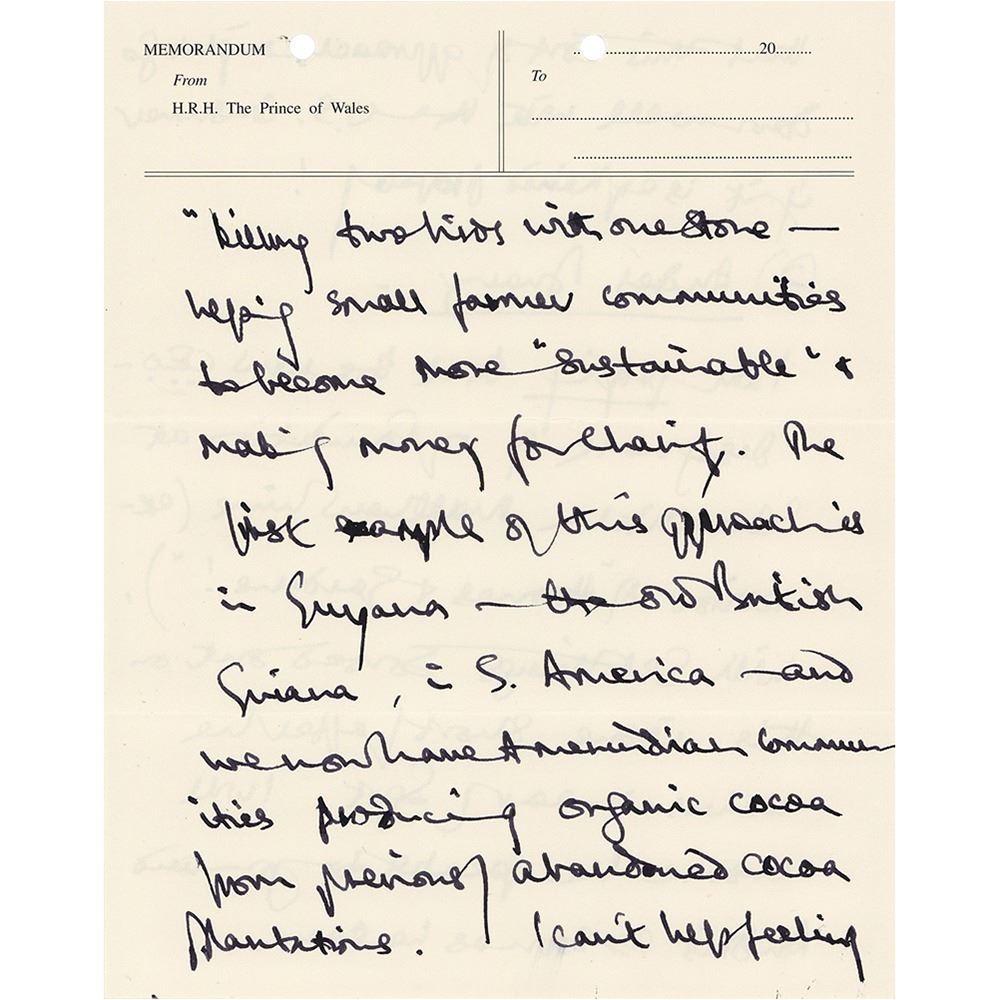 MEMORANDUM
From
H.R.H. The Prince of Wales
20
To
"killing two birds with one stone —
helping small farmer communities
to become more "sustainable" &
making money for charity. The
first example of this approach is
in Guyana — the old British
Guiana, in S. America — and
we now have Amerindian commun-
ities producing organic cocoa
from previously abandoned cocoa
plantations. I can't help feeling